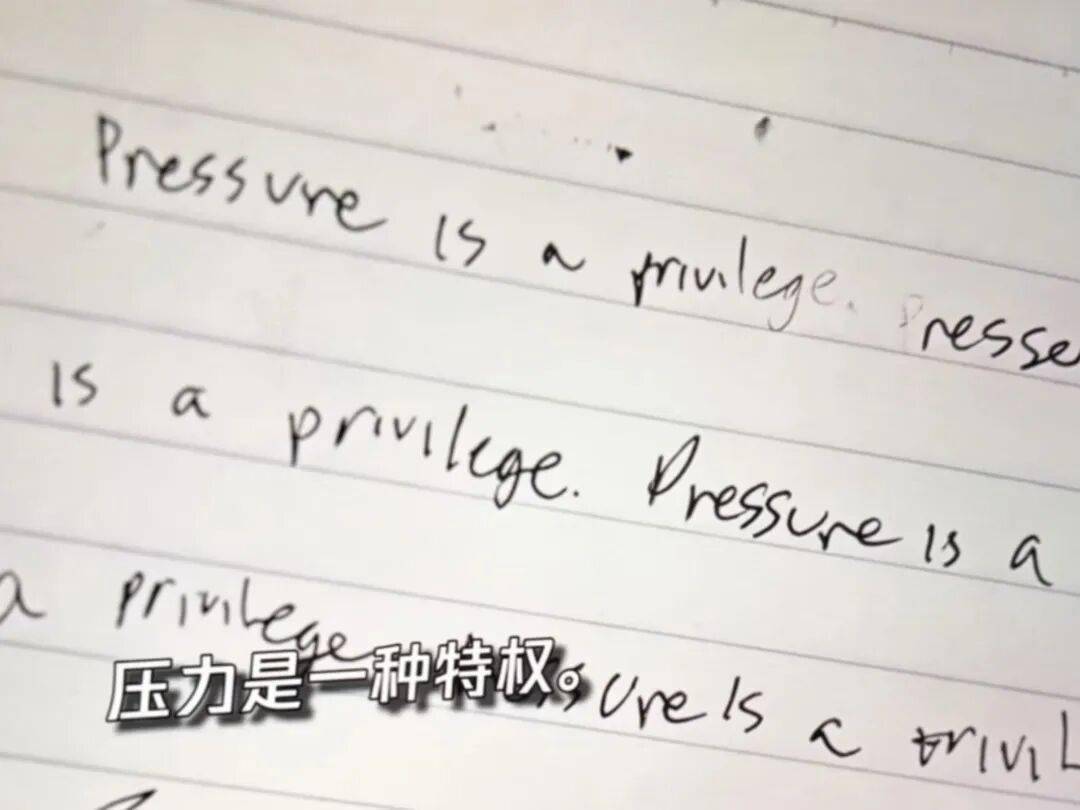 Pressure is a privilege. Presse
is a privilege. Pressure is a
a privilege
压力是一种特权。
ssure is a privil